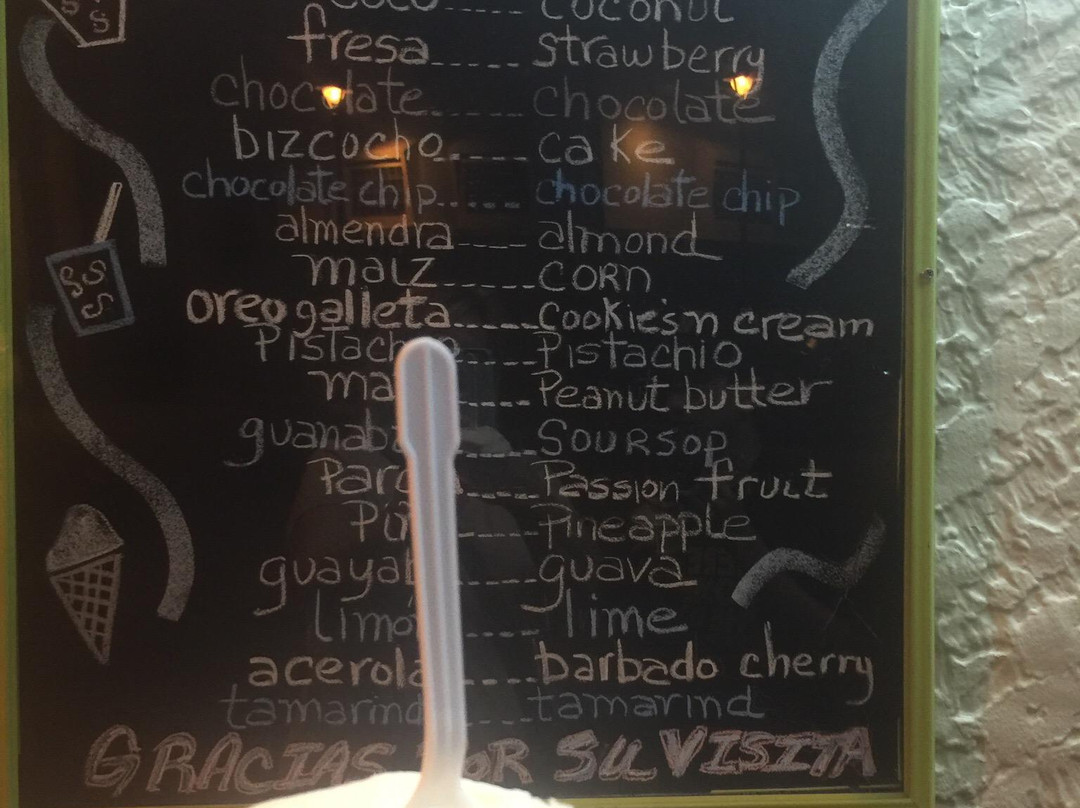 coco....coconut
fresa.....strawberry
chocolate....chocolate
bizcocho.....cake
chocolate chip......chocolate chip
almendra....almond
maiz.....corn
oreo galleta.....cookies'n cream
Pistachio....Pistachio
ma....Peanut butter
guanab...Soursop
Parc....Passion fruit
Piñ....Pineapple
guayab....guava
limo....lime
acerola....barbado cherry
tamarind....tamarind
GRACIAS POR SU VISITA